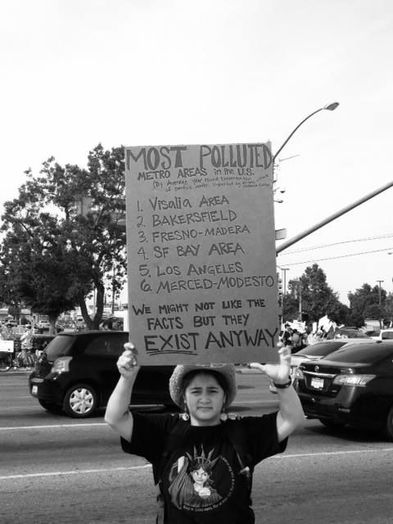 MOST POLLUTED
METRO AREAS in the U.S.
(By Average Year Round Concentration
of particle matter
1. VISALIA AREA
2. BAKERSFIELD
3. FRESNO-MADERA
4. SF BAY AREA
5. LOS ANGELES
6. MERCED-MODESTO
WE MIGHT NOT LIKE THE
FACTS BUT THEY
EXIST ANYWAY